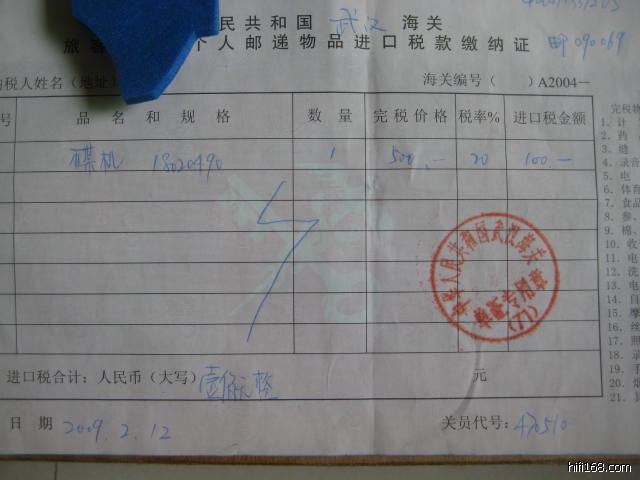 民共和国 武汉 海关
旅 个人邮递物品进口税款缴纳证 邮090069
税人姓名(地址) 海关编号( )A2004-
号 品名和规格 数量 完税价格 税率% 进口税金额
碟机 13020490 1 500.- 20 100.-
中华人民共和国武汉海关
单证专用章
(71)
进口税合计:人民币(大写)壹佰元整 元
日期 2009.2.12 关员代号:470510
完税
1、计
2、药
3、
4、录音
5、电
6、体育
7、食品
8、参、
9、棉、
10、收
11、电
12、洗
13、电
14、自
15、摩
16、丝
17、照
18、录
19、手
20、
21、
hifi168.com